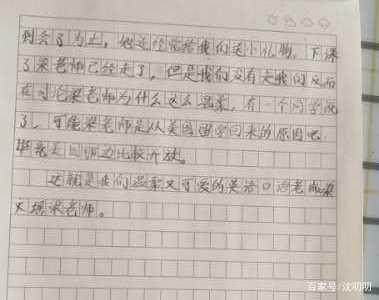 到会了为止，她还经常给我们送小礼物。下课
了梁老师已经走了，但是我们没有走我们反后
在讨论梁老师为什么这么温柔，有一个同学说
了，可能梁老师是从美国留学回来的原因吧
毕竟美国那边比较开放。
这就是我们温柔又可爱的英语口语老师梁
梁老师。
百家号/沈明明